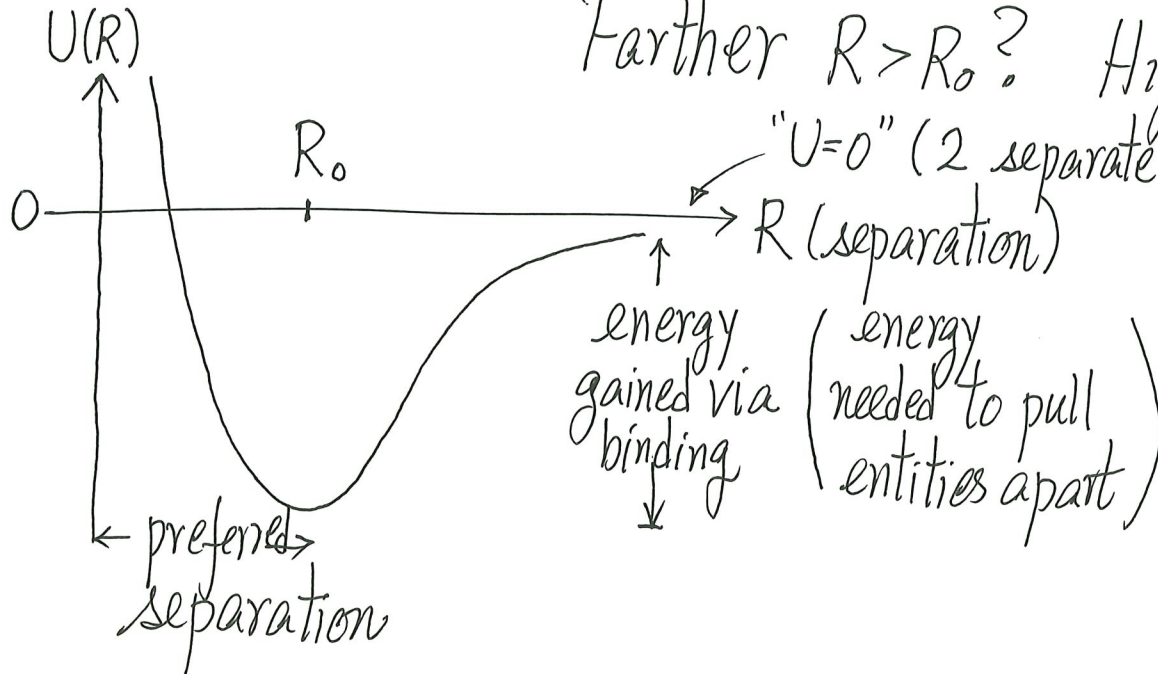 U(R)
Farther R > R₀?
R₀
"U=0" (2 separate
0
R (separation)
energy
gained via
binding
(energy
needed to pull
entities apart)
preferred
separation